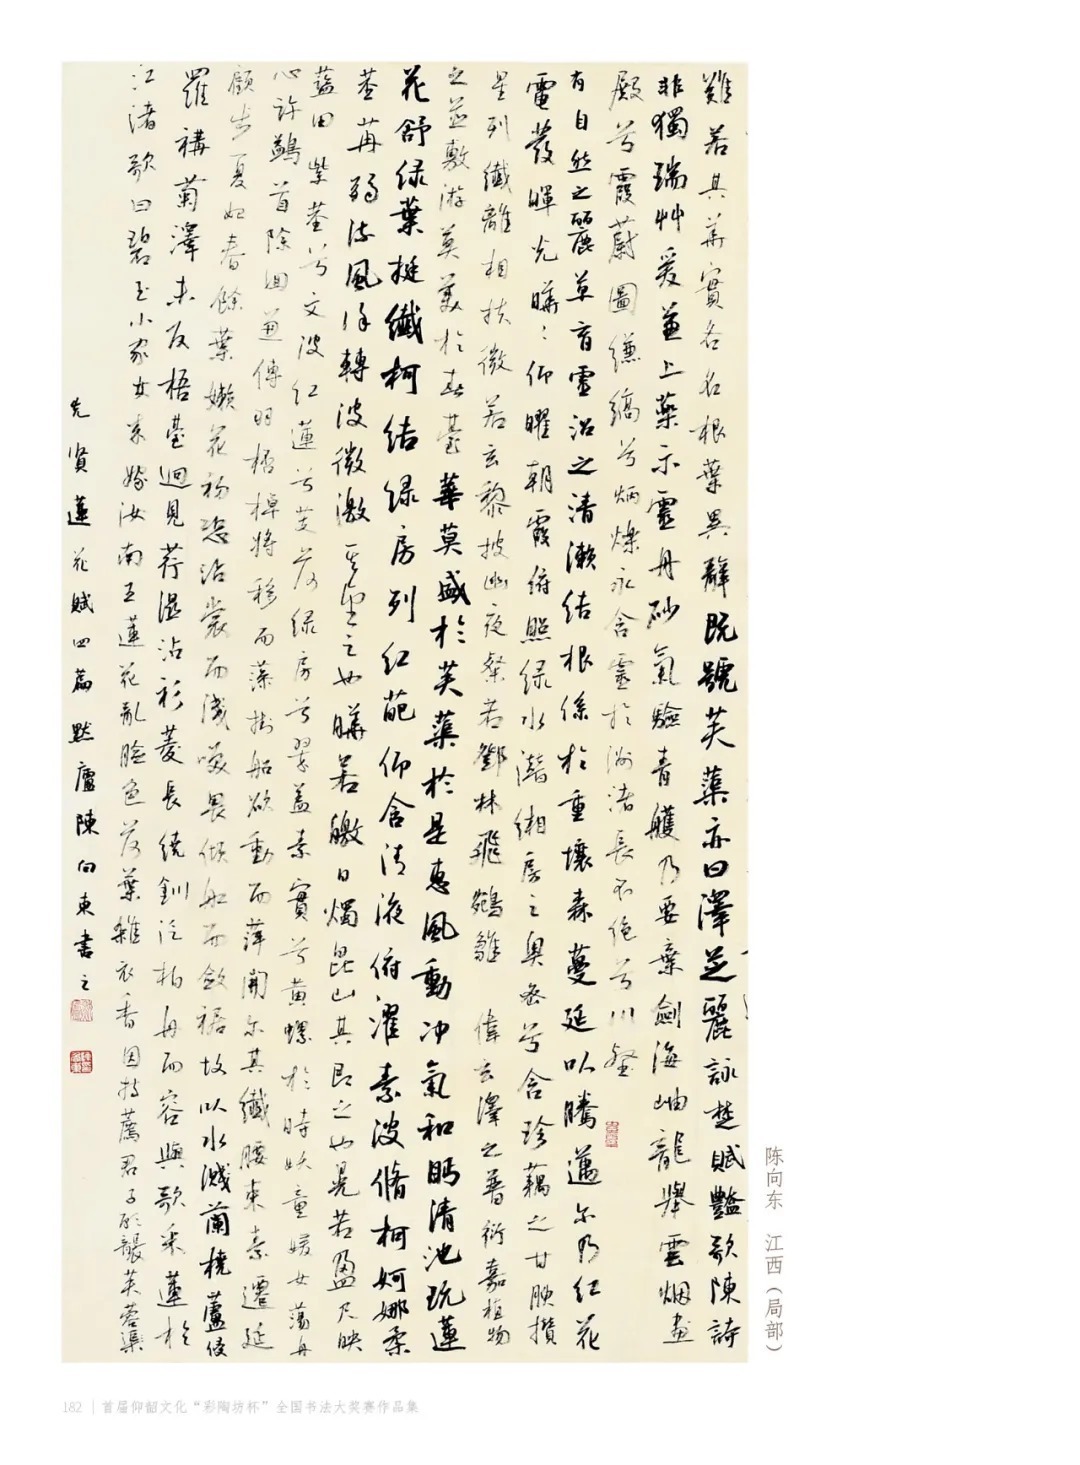 難若其華實各名根葉異辭既號芙蕖亦曰澤芝麗詠楚賦豔歌陳詩
非獨瑞艸爰兼上藥示靈丹砂氣驗青雘乃要棄劍海岫龍舉雲烟畫
殿兮霞蔚圖縑縞兮炳爍永含靈於洲渚長不絕兮川壑
有自然之麗草育靈沼之清瀨結根係於重壤森蔓延以騰邁尔乃紅花
電發暉光曄曄仰曜朝霞俯照緑水潛緗房之奧密兮含珍藕之甘腴攢
星列纖離相扶微若玄黎披幽夜粲若鄧林飛鵷雛偉玄澤之普衍嘉植物
之並敷游莫美於春臺華莫盛於芙蕖於是惠風動沖氣和眄清池玩蓮
花舒緑葉挺纖柯結緑房列紅葩仰含清液俯濯素波脩柯婀娜柔
莖苒弱流風徐轉波微激其望之也曄若皦日燭崑山其即之也晃若盈尺映
藍田紫莖兮文波紅蓮兮芰荷緑房兮翠蓋素實兮黄螺於時妖童媛女蕩舟
心許鷁首徐迴兼傳羽桮棹將移而藻掛船欲動而萍開尔其纖腰束素遷延
顧步夏始春餘葉嫩花初恐沾裳而淺笑畏傾船而斂裾故以水濺蘭橈蘆侵
羅褠菊澤未反梧臺迴見荇濕沾衫菱長繞釧泛柏舟而容與歌采蓮於
江渚歌曰碧玉小家女來嫁汝南王蓮花亂臉色荷葉雜衣香因持薦君子願襲芙蓉裳
先賢蓮花賦四篇默廬陳向東書之
陈向东 江西（局部）
182 | 首届仰韶文化“彩陶坊杯”全国书法大奖赛作品集